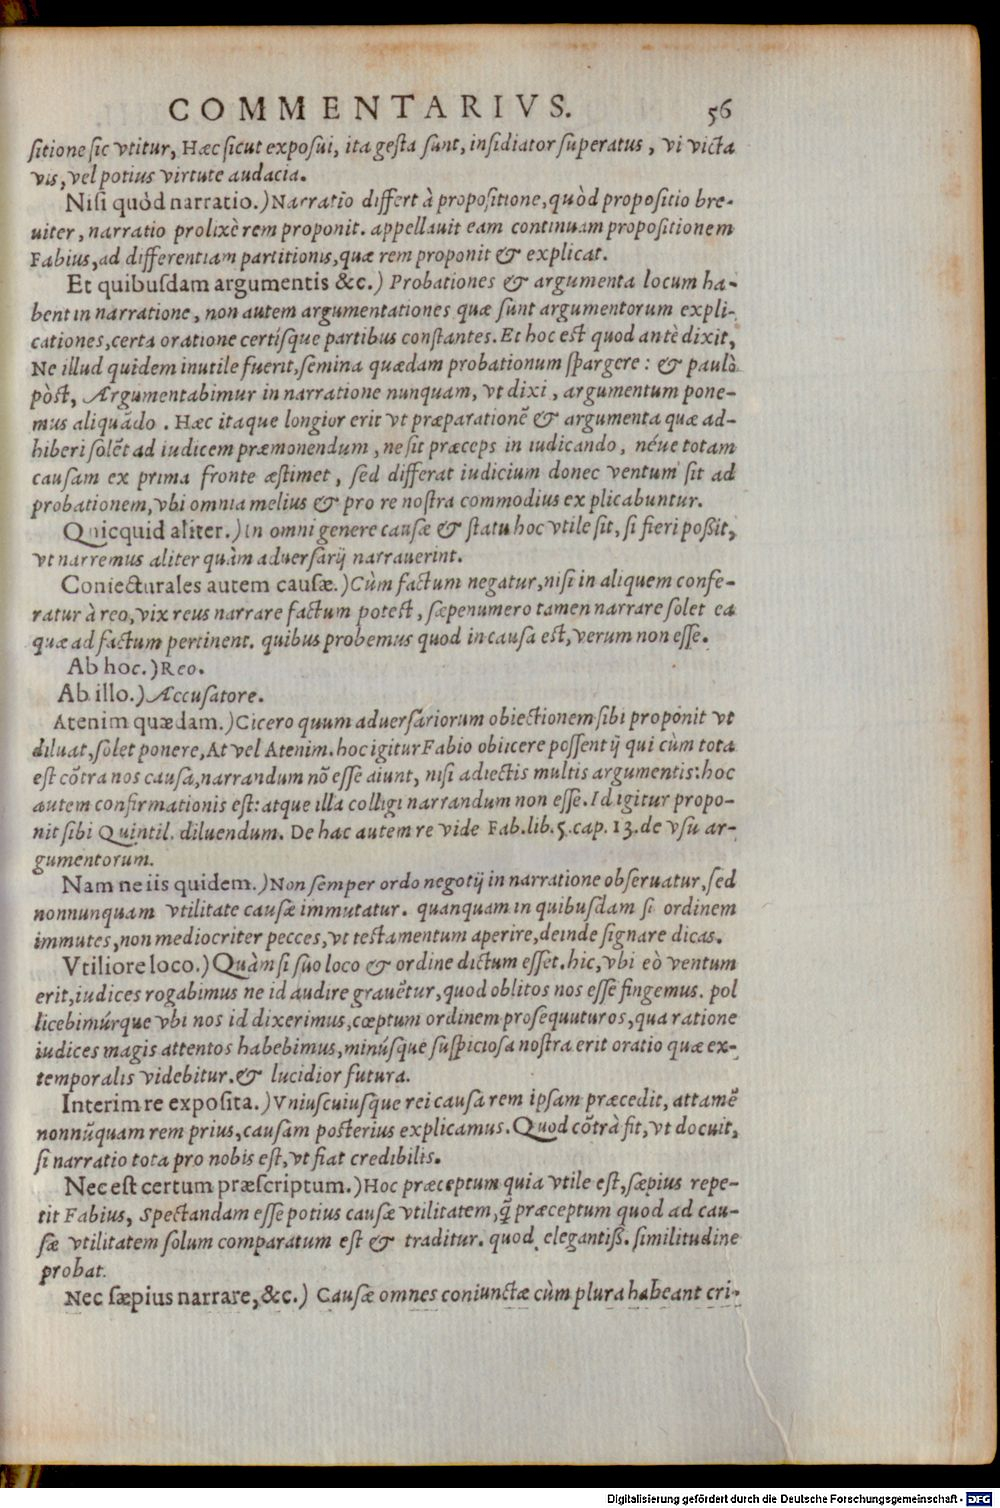 COMMENTARIVS. 56
sitione sic vtitur, Hæc sicut exposui, ita gesta sunt, insidiator superatus, vi victa
vis, vel potius virtute audacia.
Nisi quòd narratio.) Narratio differt à propositione, quòd propositio bre-
uiter, narratio prolixè rem proponit. appellauit eam continuam propositionem
Fabius, ad differentiam partitionis, quæ rem proponit & explicat.
Et quibusdam argumentis &c.) Probationes & argumenta locum ha-
bent in narratione, non autem argumentationes quæ sunt argumentorum expli-
cationes, certa oratione certísque partibus constantes. Et hoc est quod antè dixit,
Ne illud quidem inutile fuerit, semina quædam probationum spargere: & paulò
pòst, Argumentabimur in narratione nunquam, vt dixi, argumentum pone-
mus aliquãdo. Hæc itaque longior erit vt præparationẽ & argumenta quæ ad-
hiberi solẽt ad iudicem præmonendum, ne sit præceps in iudicando, néue totam
causam ex prima fronte æstimet, sed differat iudicium donec ventum sit ad
probationem, vbi omnia melius & pro re nostra commodius explicabuntur.
Quicquid aliter.) In omni genere causæ & statu hoc vtile sit, si fieri poßit,
vt narremus aliter quàm aduersarij narrauerint.
Coniecturales autem causæ.) Cùm factum negatur, nisi in aliquem confe-
ratur à reo, vix reus narrare factum potest, sæpenumero tamen narrare solet ea
quæ ad factum pertinent. quibus probemus quod in causa est, verum non esse.
Ab hoc.) Reo.
Ab illo.) Accusatore.
Atenim quædam.) Cicero quum aduersariorum obiectionem sibi proponit vt
diluat, solet ponere, At vel Atenim. hoc igitur Fabio obiicere possent ij qui cùm tota
est cõtra nos causa, narrandum nõ esse aiunt, nisi adiectis multis argumentis: hoc
autem confirmationis est: atque illa colligi narrandum non esse. Id igitur propo-
nit sibi Quintil. diluendum. De hac autem re vide Fab. lib. 5. cap. 13. de vsu ar-
gumentorum.
Nam ne iis quidem.) Non semper ordo negotij in narratione obseruatur, sed
nonnunquam vtilitate causæ immutatur. quanquam in quibusdam si ordinem
immutes, non mediocriter pecces, vt testamentum aperire, deinde signare dicas.
Vtiliore loco.) Quàm si suo loco & ordine dictum esset. hic, vbi eò ventum
erit, iudices rogabimus ne id audire grauẽtur, quod oblitos nos esse fingemus. pol
licebimúrque vbi nos id dixerimus, cœptum ordinem prosequuturos, qua ratione
iudices magis attentos habebimus, minúsque suspiciosa nostra erit oratio quæ ex-
temporalis videbitur. & lucidior futura.
Interim re exposita.) Vniuscuiusque rei causa rem ipsam præcedit, attamẽ
nonnũquam rem prius, causam posterius explicamus. Quod cõtrà fit, vt docuit,
si narratio tota pro nobis est, vt fiat credibilis.
Nec est certum præscriptum.) Hoc præceptum quia vtile est, sæpius repe-
tit Fabius, Spectandam esse potius causæ vtilitatem, q̃ præceptum quod ad cau-
sæ vtilitatem solum comparatum est & traditur. quod elegantiß. similitudine
probat.
Nec sæpius narrare, &c.) Causæ omnes coniunctæ cùm plura habeant cri-
Digitalisierung gefördert durch die Deutsche Forschungsgemeinschaft - DFG